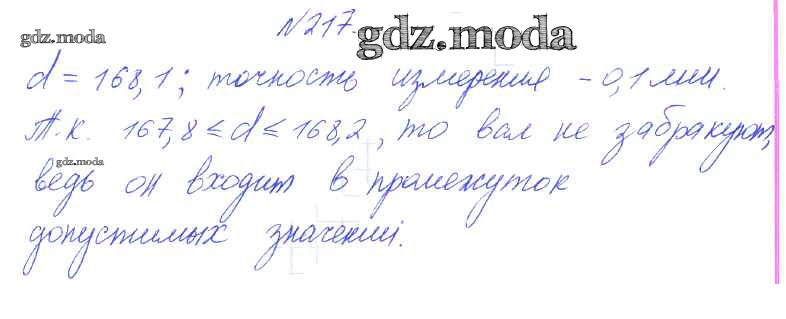 №217.
gdz.moda
gdz.moda
d = 168,1; точность измерения - 0,1 мм.
Т.к. 167,8 ≤ d ≤ 168,2, то вал не забракуют,
gdz.moda
ведь он входит в промежуток
допустимых значений.